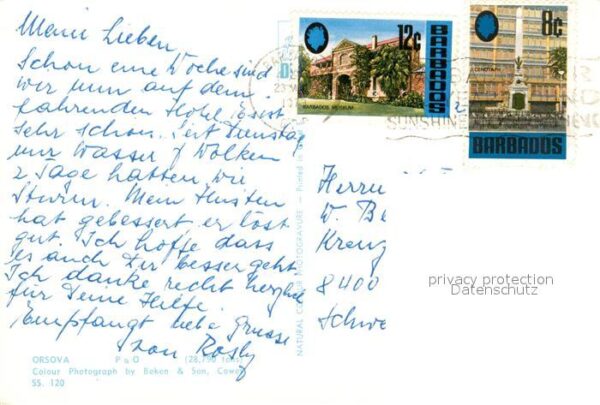 Meine Lieben
Schon eine Woche sind
wir nun auf dem
fahrenden Hotel, es ist
sehr schön. Seit Dienstag
nur Wasser & Wolken
2 Tage hatten wir
Sturm. Mein Husten
hat gebessert er löst
gut. Ich hoffe dass
es auch Dir besser geht.
Ich danke recht herzlich
für Deine Hilfe.
Empfangt liebe Grüsse
von Rosly
ORSOVA P & O (28,790 tons)
Colour Photograph by Beken & Son, Cowes
SS. 120
NATURAL COLOUR PHOTOGRAVURE — Printed in
12c
BARBADOS
BARBADOS MUSEUM
8c
CENOTAPH
BARBADOS
SUNSHINE
Herrn
W. Be
Kreuz
8400
Schwe
privacy protection
Datenschutz